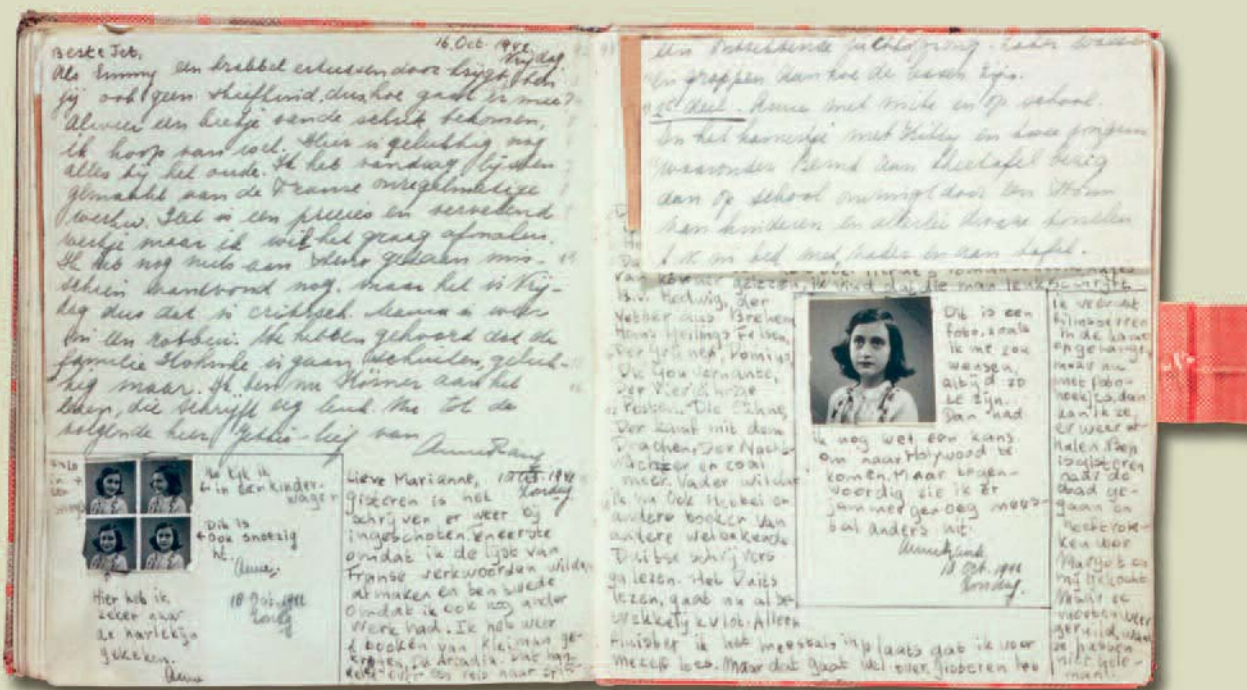 Beste Jet,
16. Oct. 1942
Vrijdag
Als Emmy een krabbel ertussendoor krijgt, ben
jij ook geen stiefkind, dus hoe gaat er mee?
Alweer een beetje van de schrik bekomen,
ik hoop van wel. Hier is gelukkig nog
alles bij het oude. Ik heb vandaag lijsten
gemaakt van de Franse onregelmatige
werkw. Het is een precies en vervelend
werkje maar ik wil het graag afmaken.
Ik heb nog niets aan steno gedaan mis-
schien vanavond nog. maar het is Vrij-
dag dus dat is critisch. Mama is weer
in een We hebben gehoord dat de
familie is gaan schuilen, geluk-
kig maar. Ik ben nu Körner aan het
lezen, die schrijft erg leuk. Nu tot de
volgende keer van
Anne Frank
Nu kijk ik
in een kinder-
wagen
Dit is
ook snoezig
Anne
Hier heb ik
zeker naar
de harlekijn
gekeken.
Anne
18 Oct. 1942
Zondag
Lieve Marianne,
18 Oct. 1942
Zondag
Gisteren is het
schrijven er weer bij
ingeschoten. Teneerste
omdat ik de lijst van
Franse werkwoorden wilde
afmaken en ten tweede
omdat ik ook nog ander
werk had. Ik heb weer
2 boeken van Kleiman ge-
kregen, De Arcadia. Dat han-
delt over een reis naar
en groppen aan hoe de
2e deel. Anne met mike en op school.
In het kamertje met Hilde en twee jongens
waaronder Bernd aan theetafel bezig
dan op school omringd door een stoom
van kinderen en allerlei
in bed met vader en aan tafel.
van Körner gelezen, ik vind dat die man leuk schrijft
B.v. Hedwig, der
Vetter aus Bremen
Hans Heilings Felsen,
Der Grüne Domino,
Die Gouvernante,
Der vierjährige
Posten. Die Sühne,
Der Kampf mit dem
Drachen, Der Nacht-
wächter en zoal
meer. Vader wil dat
ik nu ook Hebbel en
andere boeken van
andere welbekende
Duitse schrijvers
ga lezen. Het Duits
lezen, gaat nu al be-
trekkelijk vlot. Alleen
fluister ik het meestal inplaats dat ik voor
mezelf lees. Maar dat gaat wel over. Gisteren
Dit is een
foto, zoals
ik me zou
wensen,
altijd zo
te zijn.
Dan had
ik nog wel een kans
om naar Holywood te
komen. Maar tegen-
woordig zie ik er
jammer genoeg mees-
tal anders uit.
Anne Frank
18 Oct. 1942
Zondag.
Ik
filmsterren
in de kamer
opgehangen
maar nu
met foto-
hoekjes, dan
kan ik ze
er weer af
halen. Ben
gisteren
naar de
stad ge-
gaan en
heeft rok-
ken voor
Margot en
mij gekocht
Maar ze
moeten weer
geruild, want
ze passen
niet